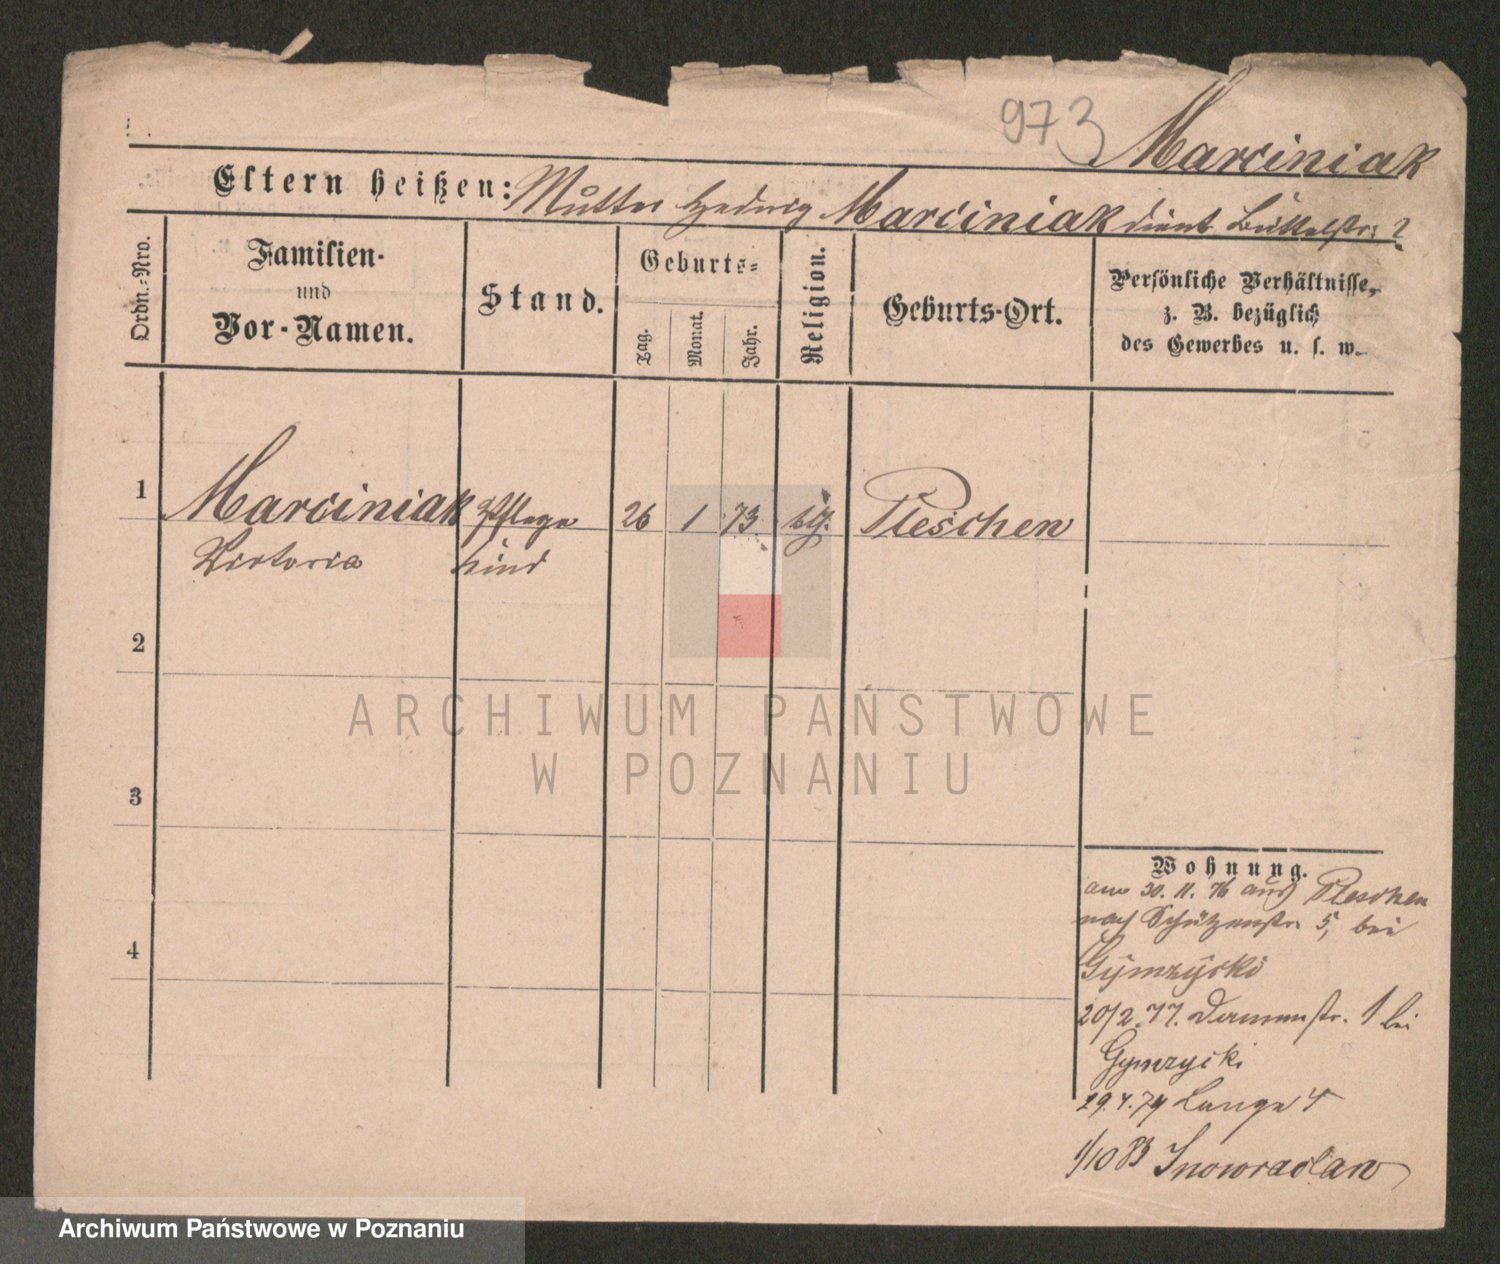 973
Marciniak
Eltern heißen: Mutter Hedwig Marciniak dient Büttelstr: 2
Ordn.-Nro.
Familien-
und
Vor-Namen.
Stand.
Geburts-
Tag.
Monat.
Jahr.
Religion.
Geburts-Ort.
Persönliche Verhältnisse,
z. B. bezüglich
des Gewerbes u. s. w.
1 Marciniak Pflege 26 1 73 Pleschen
Victoria kind
2
ARCHIWUM PAŃSTWOWE
W POZNANIU
3
Wohnung.
am 30. 11. 76 aus Pleschen
nach Schützenstr. 5, bei
Gymzyski
20/2. 77. Dammstr. 1 bei
Gymzycki
4
29.4.79 Lange 4
1/10 83 Inowraclaw
Archiwum Państwowe w Poznaniu